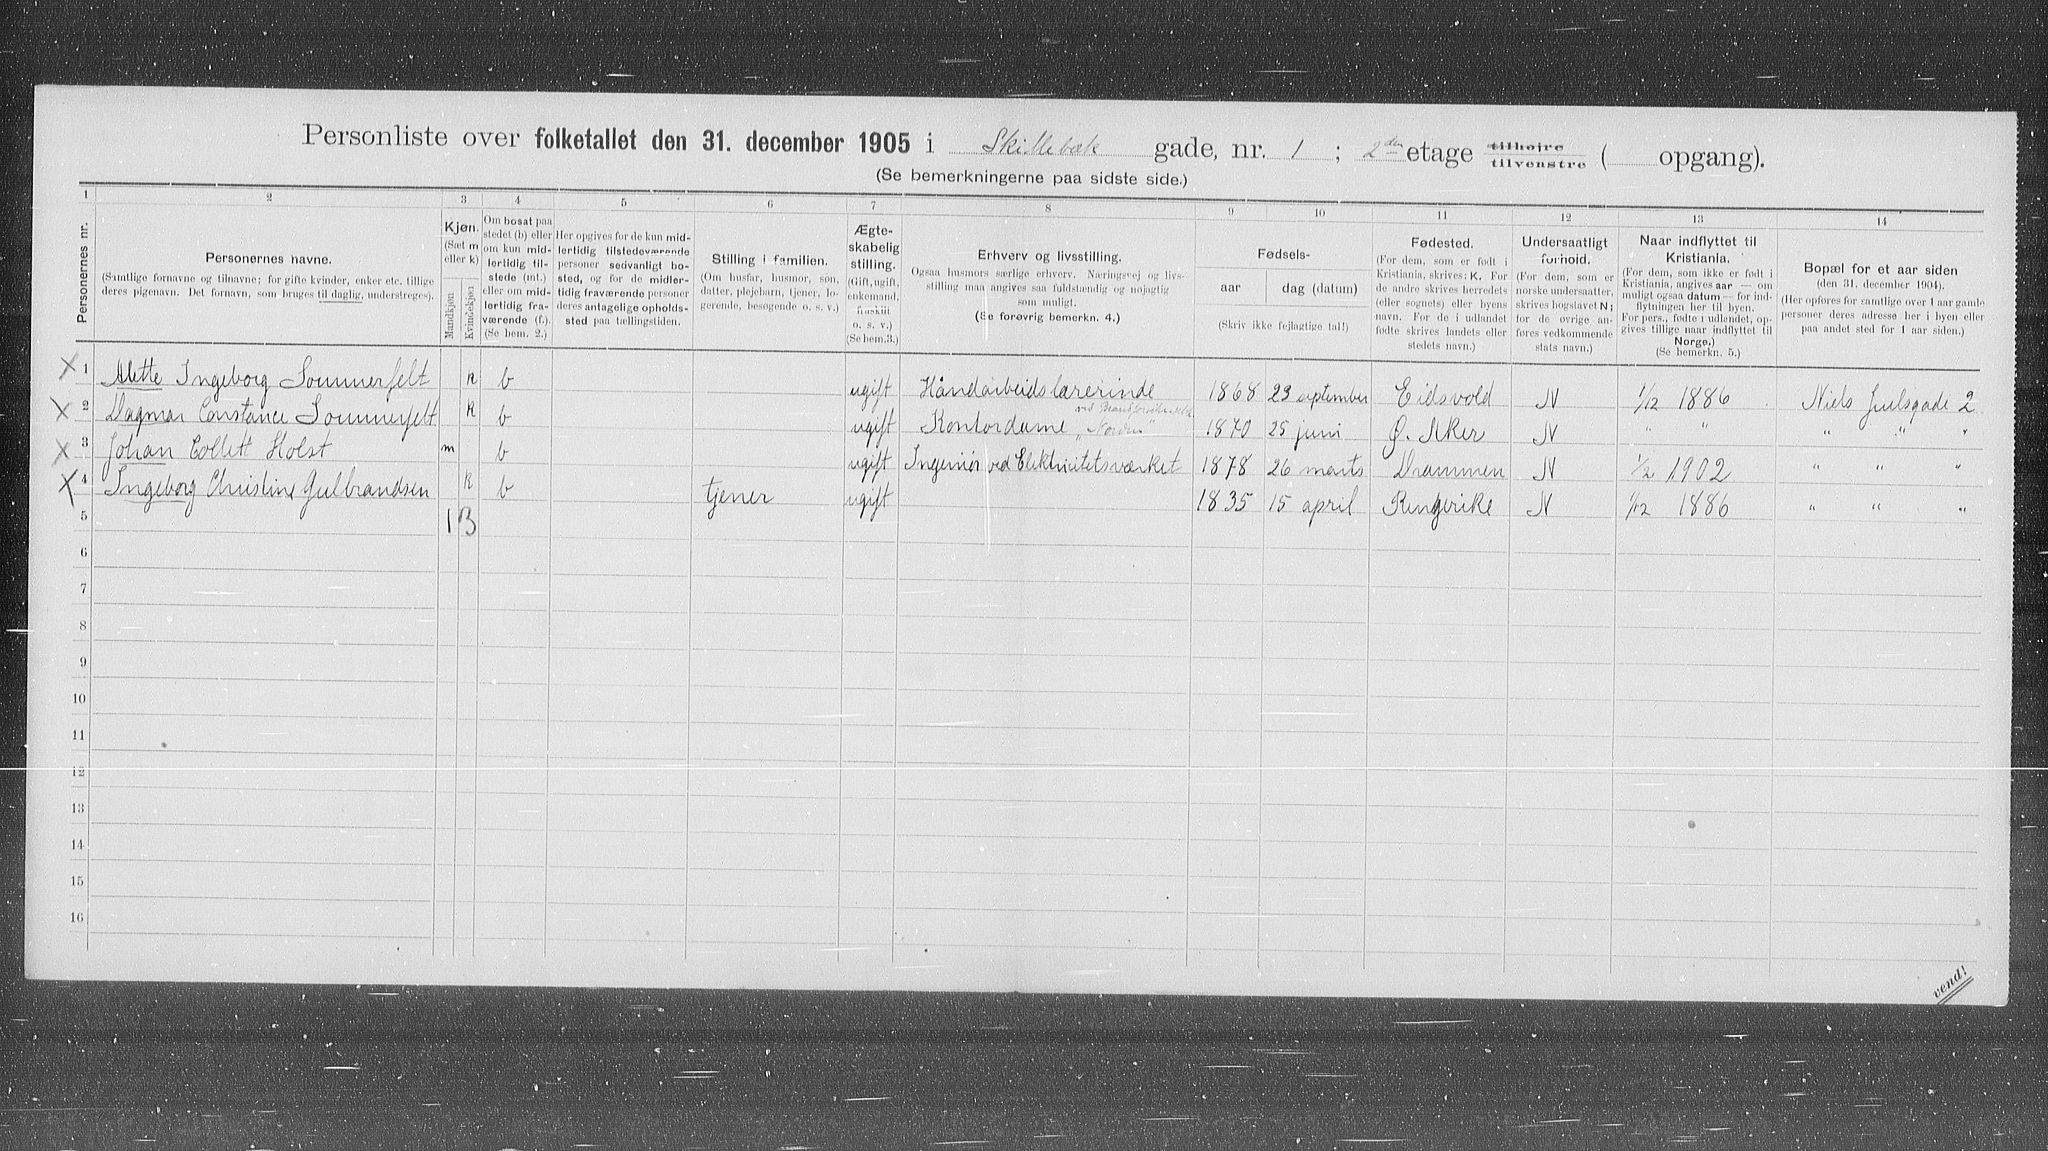 Personliste over folketallet den 31. december 1905 i Skillebæk gade, nr. 1 ; 2den etage tilhøire tilvenstre ( opgang).
(Se bemerkningerne paa sidste side.)
1 2 3 4 5 6 7 8 9 10 11 12 13 14
Personernes nr.
Personernes navne.
(Samtlige fornavne og tilnavne; for gifte kvinder, enker etc. tillige
deres pigenavn. Det fornavn, som bruges til daglig, understreges).
Kjøn.
(Sæt m
eller k)
Mandkjøn
Kvindekjøn
Om bosat paa
stedet (b) eller
om kun mid-
lertidig til-
stede (mt.)
eller om mid-
lertidig fra-
værende (f.).
(Se bem. 2.)
Her opgives for de kun mid-
lertidig tilstedeværende
personer sedvanligt bo-
sted, og for de midler-
tidig fraværende personer
deres antagelige opholds-
sted paa tællingstiden.
Stilling i familien.
(Om husfar, husmor, søn,
datter, plejebarn, tjener, lo-
gerende, besøgende o. s. v.)
Ægte-
skabelig
stilling.
(Gift, ugift,
enkemand,
fraskilt
o. s. v.)
(Se bem.3.)
Erhverv og livsstilling.
Ogsaa husmors særlige erhverv. Næringsvej og livs-
stilling maa angives saa fuldstændig og nøjagtig
som muligt.
(Se forøvrig bemerkn. 4.)
Fødsels-
aar
dag (datum)
(Skriv ikke fejlagtige tal!)
Fødested.
(For dem, som er født i
Kristiania, skrives: K. For
de andre skrives herredets
(eller sognets) eller byens
navn. For de i udlandet
fødte skrives landets eller
stedets navn.)
Undersaatligt
forhold.
(For dem, som er
norske undersaatter,
skrives bogstavet N;
for de øvrige an-
føres vedkommende
stats navn.)
Naar indflyttet til
Kristiania.
(For dem, som ikke er født i
Kristiania, angives aar — om
muligt ogsaa datum — for ind-
flytningen her til byen.
For pers., fødte i udlandet, op-
gives tillige naar indflyttet til
Norge.)
(Se bemerkn. 5.)
Bopæl for et aar siden
(den 31. december 1904).
(Her opføres for samtlige over 1 aar gamle
personer deres adresse her i byen eller
paa andet sted for 1 aar siden.)
1 Alette Ingeborg Sommerfelt k b ugift Håndarbeidslærerinde 1868 23 september Eidsvold N 1/12 1886 Niels Juelsgade 2
2 Dagmar Constance Sommerfelt k b ugift Kontordame "Norden" 1870 25 juni Ø. Aker N " " " " "
3 Johan Collett Holst m b ugift Ingeniør ved Elektricitetsværket 1878 26 marts Drammen N 1/2 1902 " " "
4 Ingeborg Christine Gulbrandsen k b tjener ugift 1835 15 april Ringerike N 1/12 1886 " " "
5 1 3
6
7
8
9
10
11
12
13
14
15
16
vend!